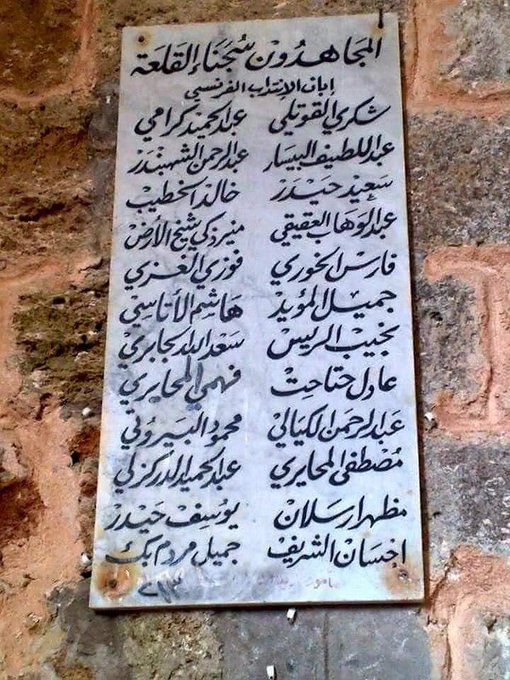 المجاهدون سجناء القلعة
إبان الانتداب الفرنسي
شكري القوتلي عبد الحميد كرامي
عبد اللطيف البيسار عبد الرحمن الشهبندر
سعيد حيدر خالد الخطيب
عبد الوهاب العفيفي منير زكي شيخ الأرض
فارس الخوري فوزي الغزي
جميل المؤيد هاشم الأتاسي
نجيب الريس سعد الله الجابري
عادل حتاحت فهمي المحايري
عبد الرحمن الكيالي محمود البيروتي
مصطفى المحايري عبد الحميد الدركزلي
مظهر ارسلان يوسف حيدر
احسان الشريف جميل مردم بك